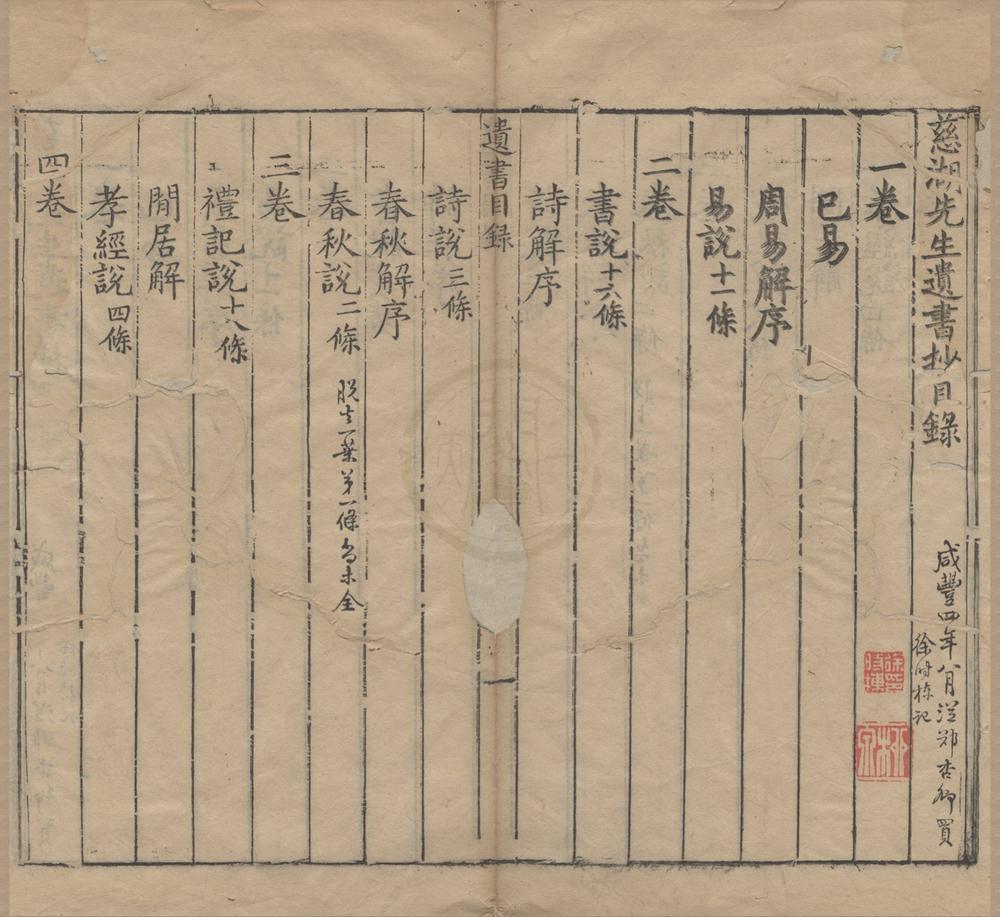 慈湖先生遺書抄目錄
咸豐四年八月從鄭杏卿買
徐時棟記
徐印時棟
柳泉
一卷
已易
周易解序
易說十一條
二卷
書說十六條
詩解序
遺書目錄
一
詩說三條
春秋解序
春秋說二條 脫去一葉第一條尚未全
三卷
禮記說十八條
閒居解
孝經說四條
四卷